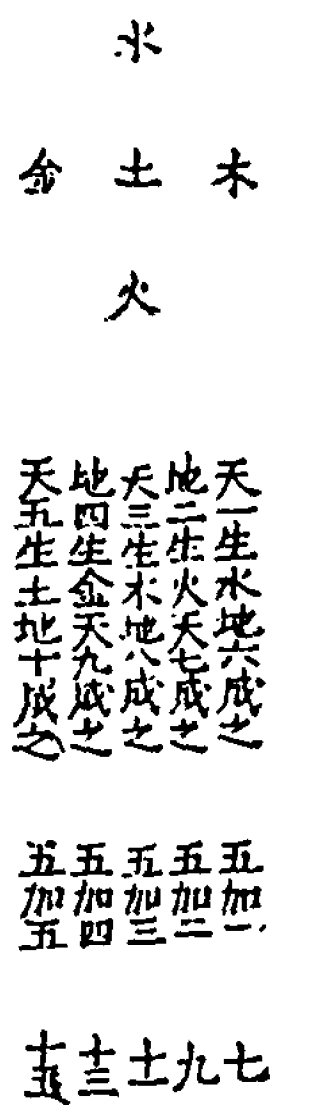 水
木
土
金
火
天一生水地六成之
地二生火天七成之
天三生木地八成之
地四生金天九成之
天五生土地十成之
五加一
五加二
五加三
五加四
五加五
七
九
十一
十三
十五